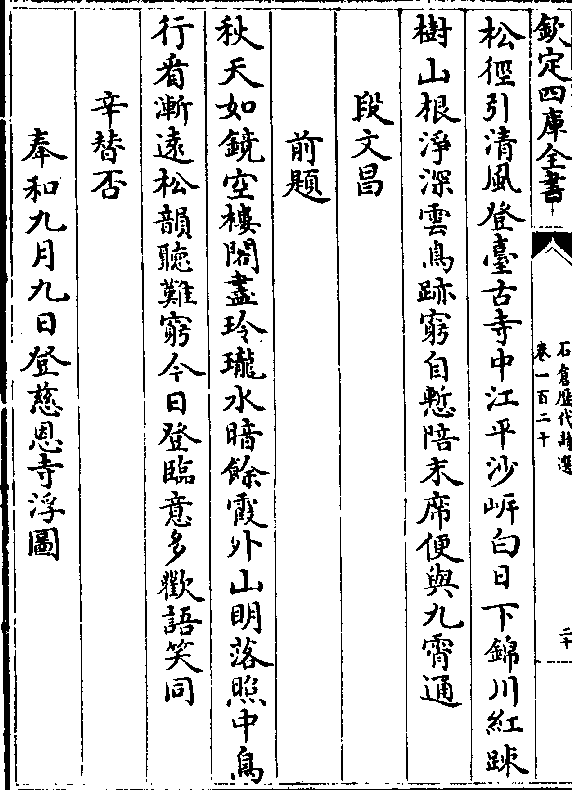 欽定四庫全書
石倉歷代詩選
卷一百二十
二十
松徑引清風登臺古寺中江平沙岍白日下錦川紅踈
樹山根淨深雲鳥跡窮自慙陪末席便與九霄通
段文昌
前題
秋天如鏡空樓閣盡玲瓏水暗餘霞外山明落照中鳥
行看漸遠松韻聽難窮今日登臨意多歡語笑同
辛替否
奉和九月九日登慈恩寺浮圖